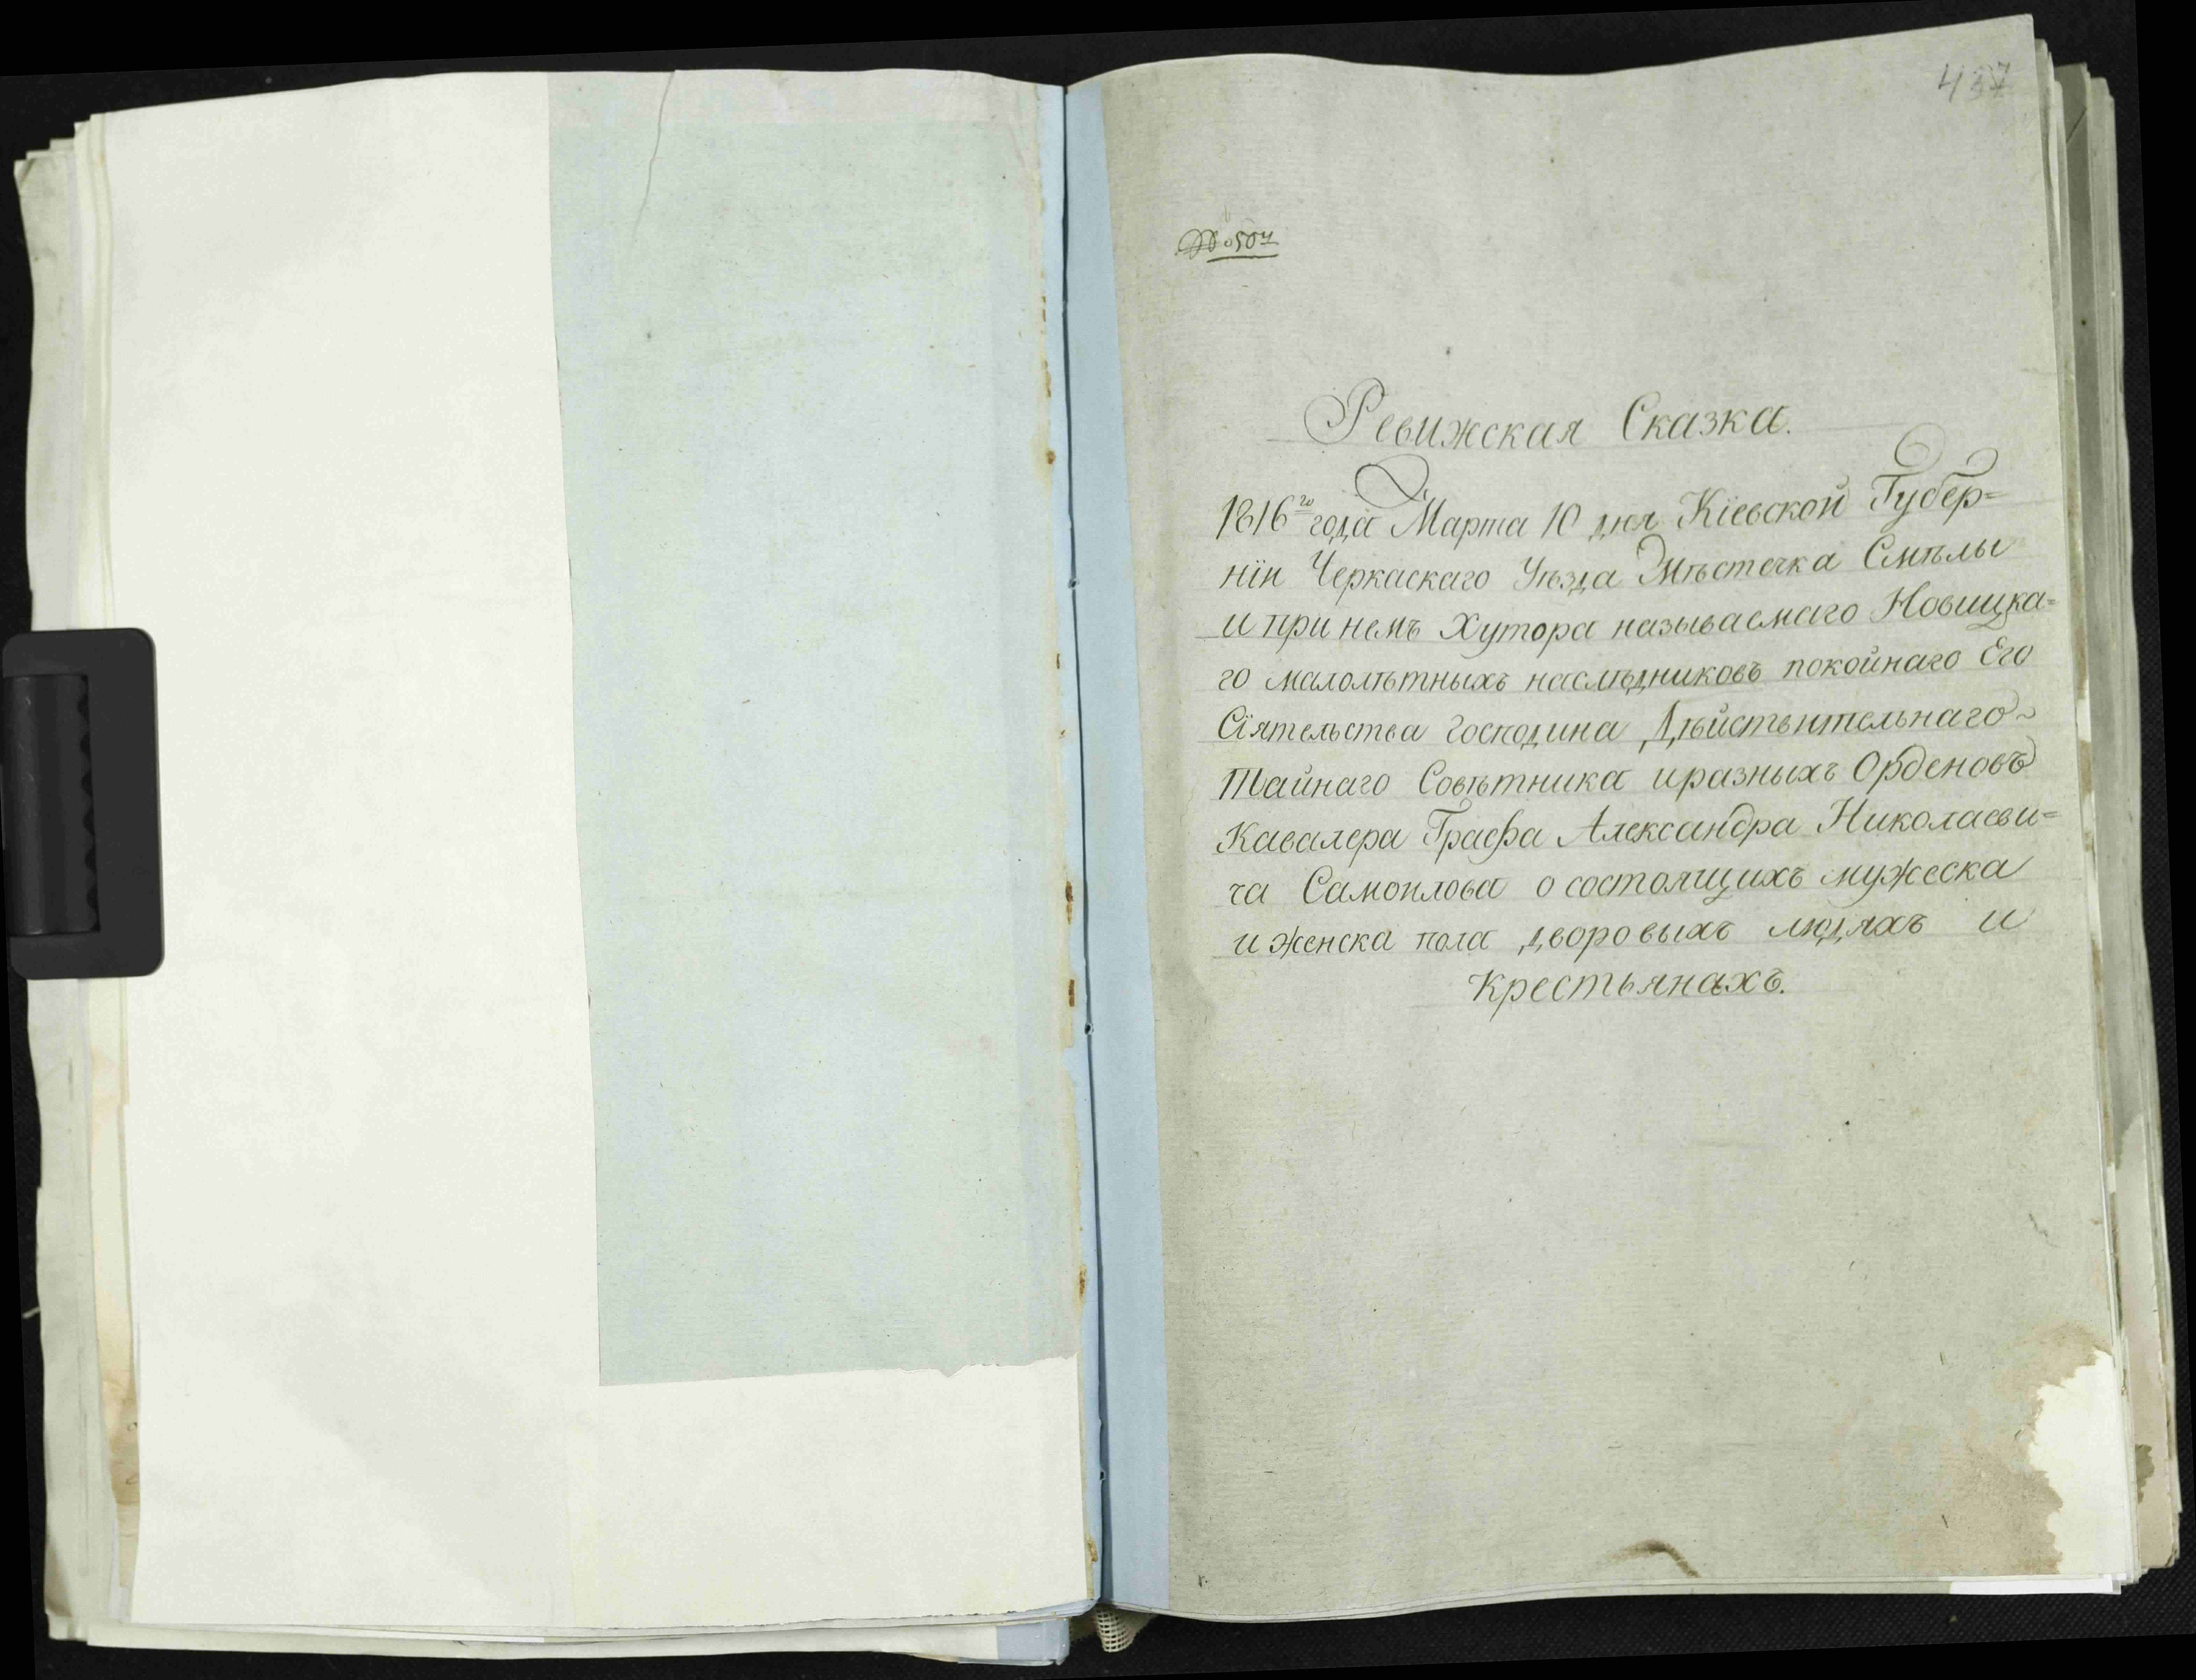 437
№ 507
Ревижская Сказка.
1816го года Марта 10 дня Кіевской Губер=
ніи Черкаскаго Уѣзда Мѣстечка Смѣлы
и при немъ Хутора называемаго Новицка=
го малолѣтныхъ наслѣдниковъ покойнаго Его
Сіятельства Господина Дѣйствительнаго
Тайнаго Совѣтника и разныхъ Орденовъ
Кавалера Графа Александра Николаеви=
ча Самоилова о состоящихъ мужеска
и женска пола дворовыхъ людяхъ и
крестьянахъ.